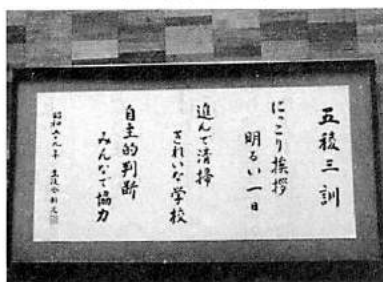 五稜三訓
にっこり挨拶
明るい一日
進んで清掃
きれいな学校
自主的判断
みんなで協力